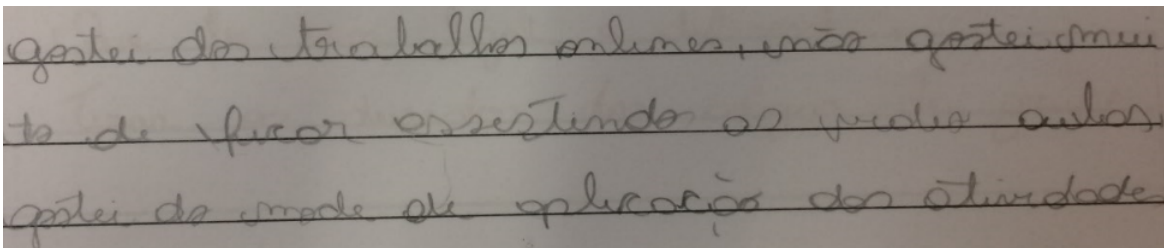 gostei dos trabalhos onlines, não gostei mui
to de ficar assestindo as vedio aulas.
gostei do modo de aplicação das atividade